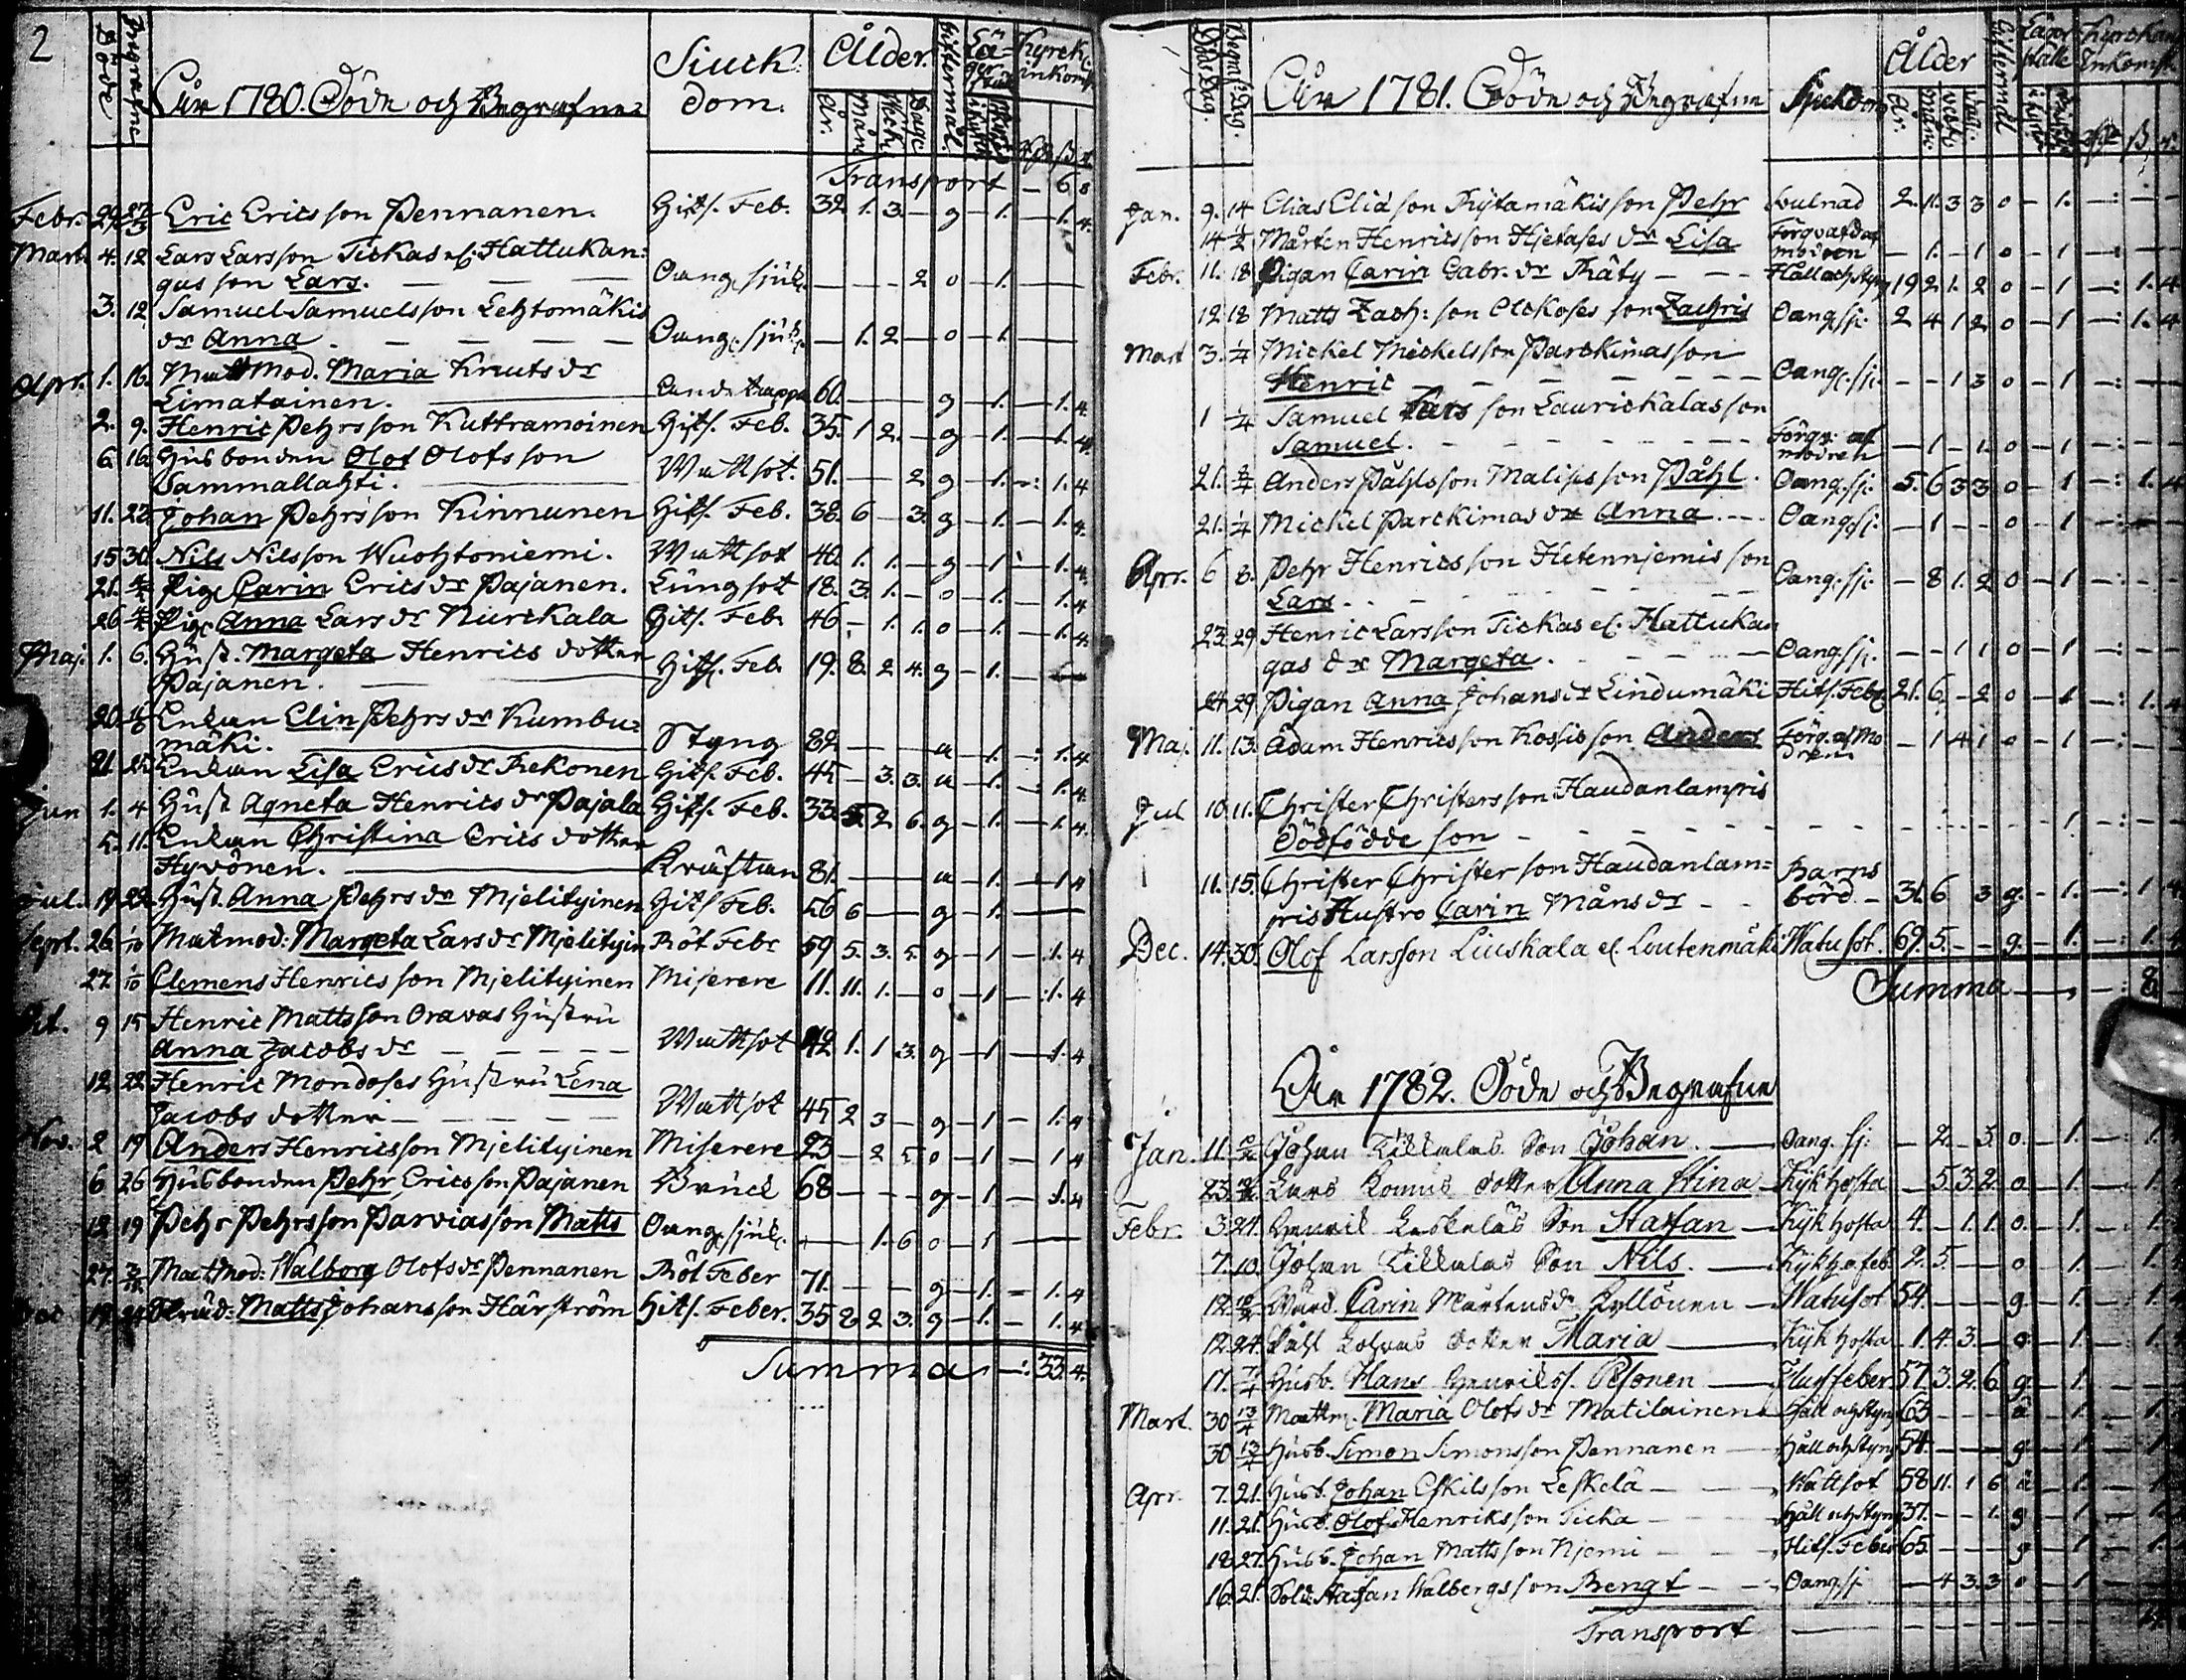 2
Döde
Begrafne
Åhr 1780. Döde och Begrafne
Siuck-
dom.
Ålder.
År.
Mån.
Giftermål.
Transport — 6 8
Febr. 29 27/3 Eric Ericsson Pennanen. Hits. Feb. 32 1. 3. — g — 1. — 1. 4
Mart. 4. 12 Lars Larsson Tickas el. Hattukan-
gas son Lars. Oang. sjuk. — — — 2 o — 1. —
3. 12 Samuel Samuelsson Lehtomäkis
dr Anna Oang. sjuk. — 1. 2. — o — 1. —
Apr. 1. 16. Matmod. Maria Knuts dr
Limatainen. 60. — — — g — 1. — 1. 4
2. 9. Henric Pehrsson Kuttramoinen Hits. Feb. 35. 1 2. — g — 1. — 1. 4
6. 16 Husbonden Olof Olofsson
Sammallahti. Wattsot. 51. — — 2. g — 1. — 1. 4
11. 23 Johan Pehrsson Kinnunen Hits. Feb. 38. 6 — 3. g — 1. — 1. 4
15 30 Nils Nilsson Wuohtoniemi. Wattsot 40. 1. 1. — g — 1 — 1. 4
21. Pig. Carin Erics dr Pajanen. Lungsot 18. 3. 1. — o — 1. — 1. 4
26 Pig. Anna Lars dr Nurckala Hits. Feb. 46 — 1. 1. o — 1. — 1. 4.
Maj. 1. 6. Hust. Margeta Henrics dotter
Pajanen. Hits. Feb. 19. 8. 2 4. g — 1. —
20. Enkan Elin Pehrs dr Kumbu-
mäki. Styng 82 — — — a — 1. — 1. 4
21 25 Enkan Lisa Erics dr Rekonen Hits. Feb. 45 — 3. 3. a — 1. — 1. 4
Jun 1. 4 Hust Agneta Henrics dr Pajala Hits. Feb. 33. 5. 2 6. g — 1. — 1. 4
5. 11. Enkan Christina Erics dotter
Hyvönen. Kräftan 81. — — — a — 1. — 1 4
Jul. 19 23 Hust. Anna Pehrs dr Mjelityinen Hits Feb. 56 6 — — g — 1. —
Sept. 26. 1/10 Matmod: Margeta Lars dr Mjelityin Röt Febr 59 5. 3. 5. g — 1 — 1. 4
27. 1/10 Clemens Henricsson Mjelityinen Miserere 11. 11. 1. — o — 1 — 1. 4
Oct. 9 15 Henric Mattsson Oravas Hustru
Anna Jacobs dr Wattsot 42 1. 1 3. g — 1 — 1. 4
12. 22 Henric Mondoses Hustru Lena
Jacobs dotter Wattsot 45 2 3 — g — 1 — 1. 4
Nov. 2 19 Anders Henricsson Mjelityinen Miserere 23 — 2 5. o — 1 — 1 4
6 26 Husbonden Pehr Ericsson Pajanen Bräck 68 — — — g — 1 — 1. 4
12 19 Pehr Pehrsson Parviasson Matts Oang. sjuk. — — 1. 6 o — 1 —
27. Matmod: Walborg Olofs dr Pennanen Röt Feber 71. — — — g — 1. — 1. 4
Dec 19 24 Matts Johansson Hårström Hits. Feber. 35 2 2 3. g — 1. — 1. 4
Summa — : 33. 4.
Döds Dag.
Begraf: Dag.
Åhr 1781. Döde och Begrafne
Sjukdom
Ålder
År.
Giftermål
Läger
ställe
Kyrckans
Inkomst.
Jan. 9. 14 Elias Eliasson Rytamäkis son Pehr Bulnad 2. 11. 3 3 o — 1. — : —
14 Mårten Henricsson Hjetases dr Lisa Förqvafd af
modren — 1. — 1 o — 1 — : —
Febr. 11. 18 Pigan Carin Gabr. dr Räty Håll och Styng 19 2. 1. 2 o — 1 — : 1. 4
12. 18 Matts Zach: son Elckoses son Zachris Oang. sj. 2 4 1 2 o — 1 — : 1. 4
Mart 3. 1/4 Mickel Mickelsson Parckimas son
Henric Oang. sj. — — 1 3 o — 1 — : —
1 1/4 Samuel Lars son Laurickalas son
Samuel. Förqv: af
modren — 1 — 1. o — 1 — : —
21. Anders Påhlsson Malises son Påhl. Oang. sj. 5. 6 3 3 o — 1 — : 1. 4
21. 1/4 Mickel Parckimas dr Anna Oang. sj. — 1 — — o — 1 — : —
Apr. 6 8. Pehr Henricsson Hetennjemis son
Lars Oang. sj. — 8 1. 2 o — 1 — : —
23. 29 Henric Larsson Tickas el. Hattukan
gas dr Margeta. Oang. sj. — — 1 1 o — 1 — : —
24. 29 Pigan Anna Johans dr Lindumäki Hits. Feb. 21. 6. — 2 o — 1 — : 1. 4
Maj. 11. 13. Adam Henricsson Kossis son Anders Förq. af Mo
dren — 1 4 1 o — 1 — : —
Jul 10. 11. Christer Christersson Haudanlampis
dödfödde son — 1. — : —
11. 15. Christer Christerson Haudanlam-
pis Hustro Carin Måns dr Barns
börd 31. 6 3 g. — 1. — : 1 4
Dec. 14. 30. Olof Larsson Liuskala el. Loutenmäki Watusot. 69. 5. — — g. — 1. — : 1. 4
Summa — : 8
År 1782. Döde och Begrafne
Jan. 11. Johan Tikkalas Son Johan Oang. sj: — 2. — 3. o. — 1. — : 1. 4
23. Lars dotter Anna Stina Kikhosta — 5. 3. 2. o — 1. —
Febr. 3. 24. Henrik Leskeläs Son Staffan Kikhosta 4. — 1. 1. o. — 1. —
7. 10. Johan Tikkalas Son Nils. 2. 5. — — o — 1. —
12. Carin Mårtens dr Kyllönen Watusot 54. — — — g. — 1. —
12. 24. Påhl dotter Maria Kikhosta — 1. 4. 3. — o — 1. —
17. Husb. Hans Henrikss. Pesonen 57. 3. 2. 6. g. — 1. —
Mart. 30 13/4 Mattm. Maria Olofs dr Matilainen Håll och Styng 63 — — — 1. —
30 13/4 Husb. Simon Simonsson Pennanen Håll och Styng 54. — — — g — 1 —
Apr. 7. 21. Husb. Johan Eskilsson Leskelä Wattsot 58 11. 1 6 — 1. —
11. 21. Husb. Olof Henriksson Ticka Håll och Styng 37. — — 1. g — 1 —
18. 27. Husb. Johan Mattsson Njemi Hits. Feber 65. — — — g — 1 —
16. 21. Sold. Staffan Walbergs son Bengt Oang. sj. — 4 3. 3 o — 1 —
Transport